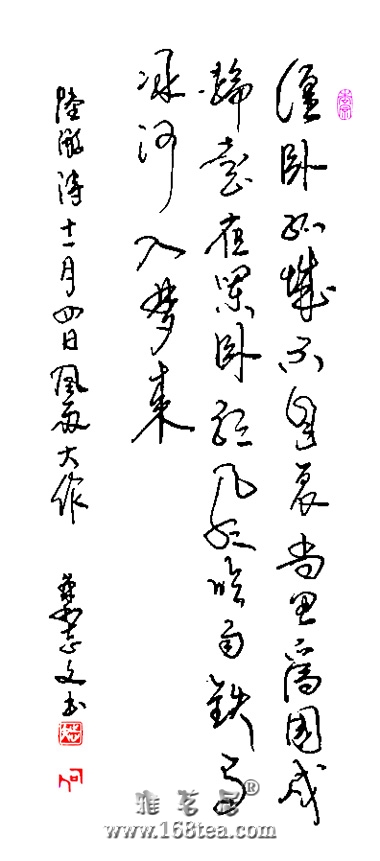 僵卧孤村不自哀尚思爲国戍
輪臺夜闌卧聽風吹雨鉄马
冰河入梦来
陸游詩十一月四日風雨大作 志文书
雅茗居®
www.168tea.com